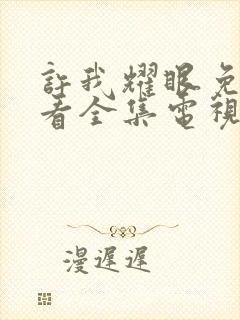 許我耀眼免
看全集電視
漫遲遲